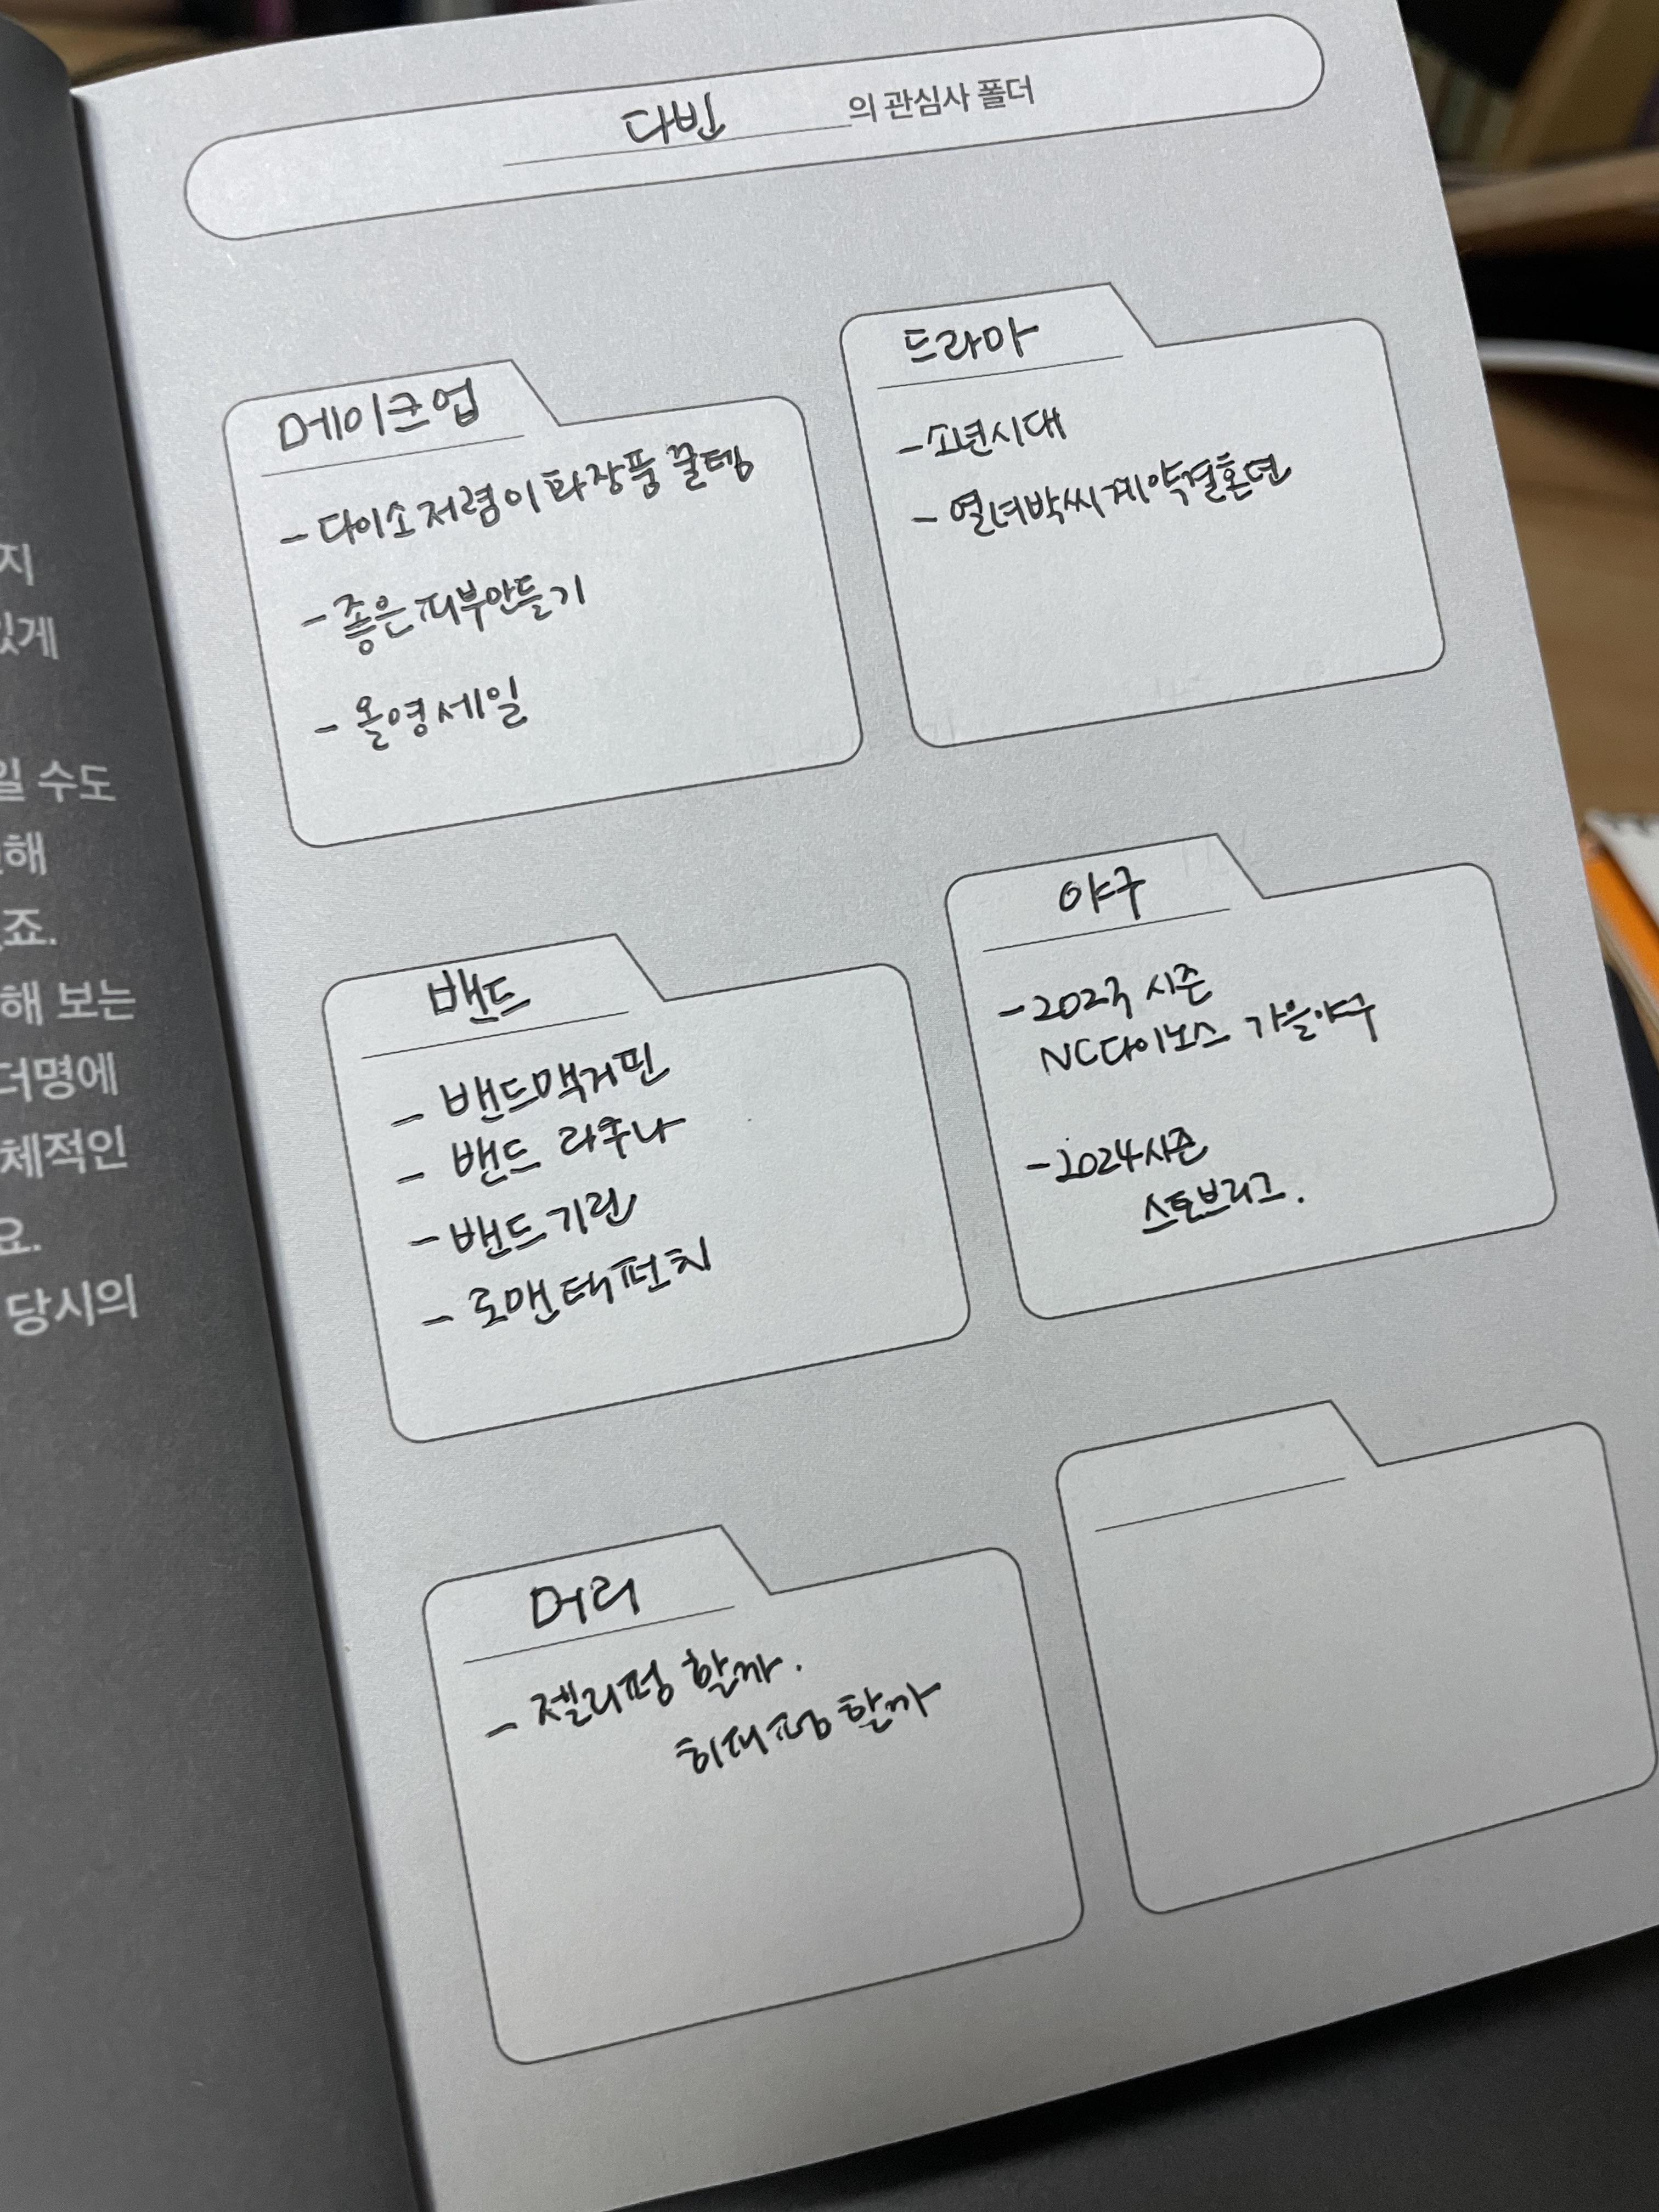 다빈의 관심사 폴더
메이크업
- 다이소 저렴이 화장품 꿀템
- 좋은 피부만들기
- 올영세일
드라마
- 소년시대
- 열녀박씨계약결혼뎐
밴드
- 밴드맥거핀
- 밴드 라쿠나
- 밴드기린
- 로맨틱펀치
야구
- 2023 시즌
NC다이노스 가을야구
- 2024시즌
스토브리그.
머리
- 젤리펌 할까.
히피펌할까
지
있게
일 수도
해
죠.
해 보는
더명에
체적인
요.
당시의